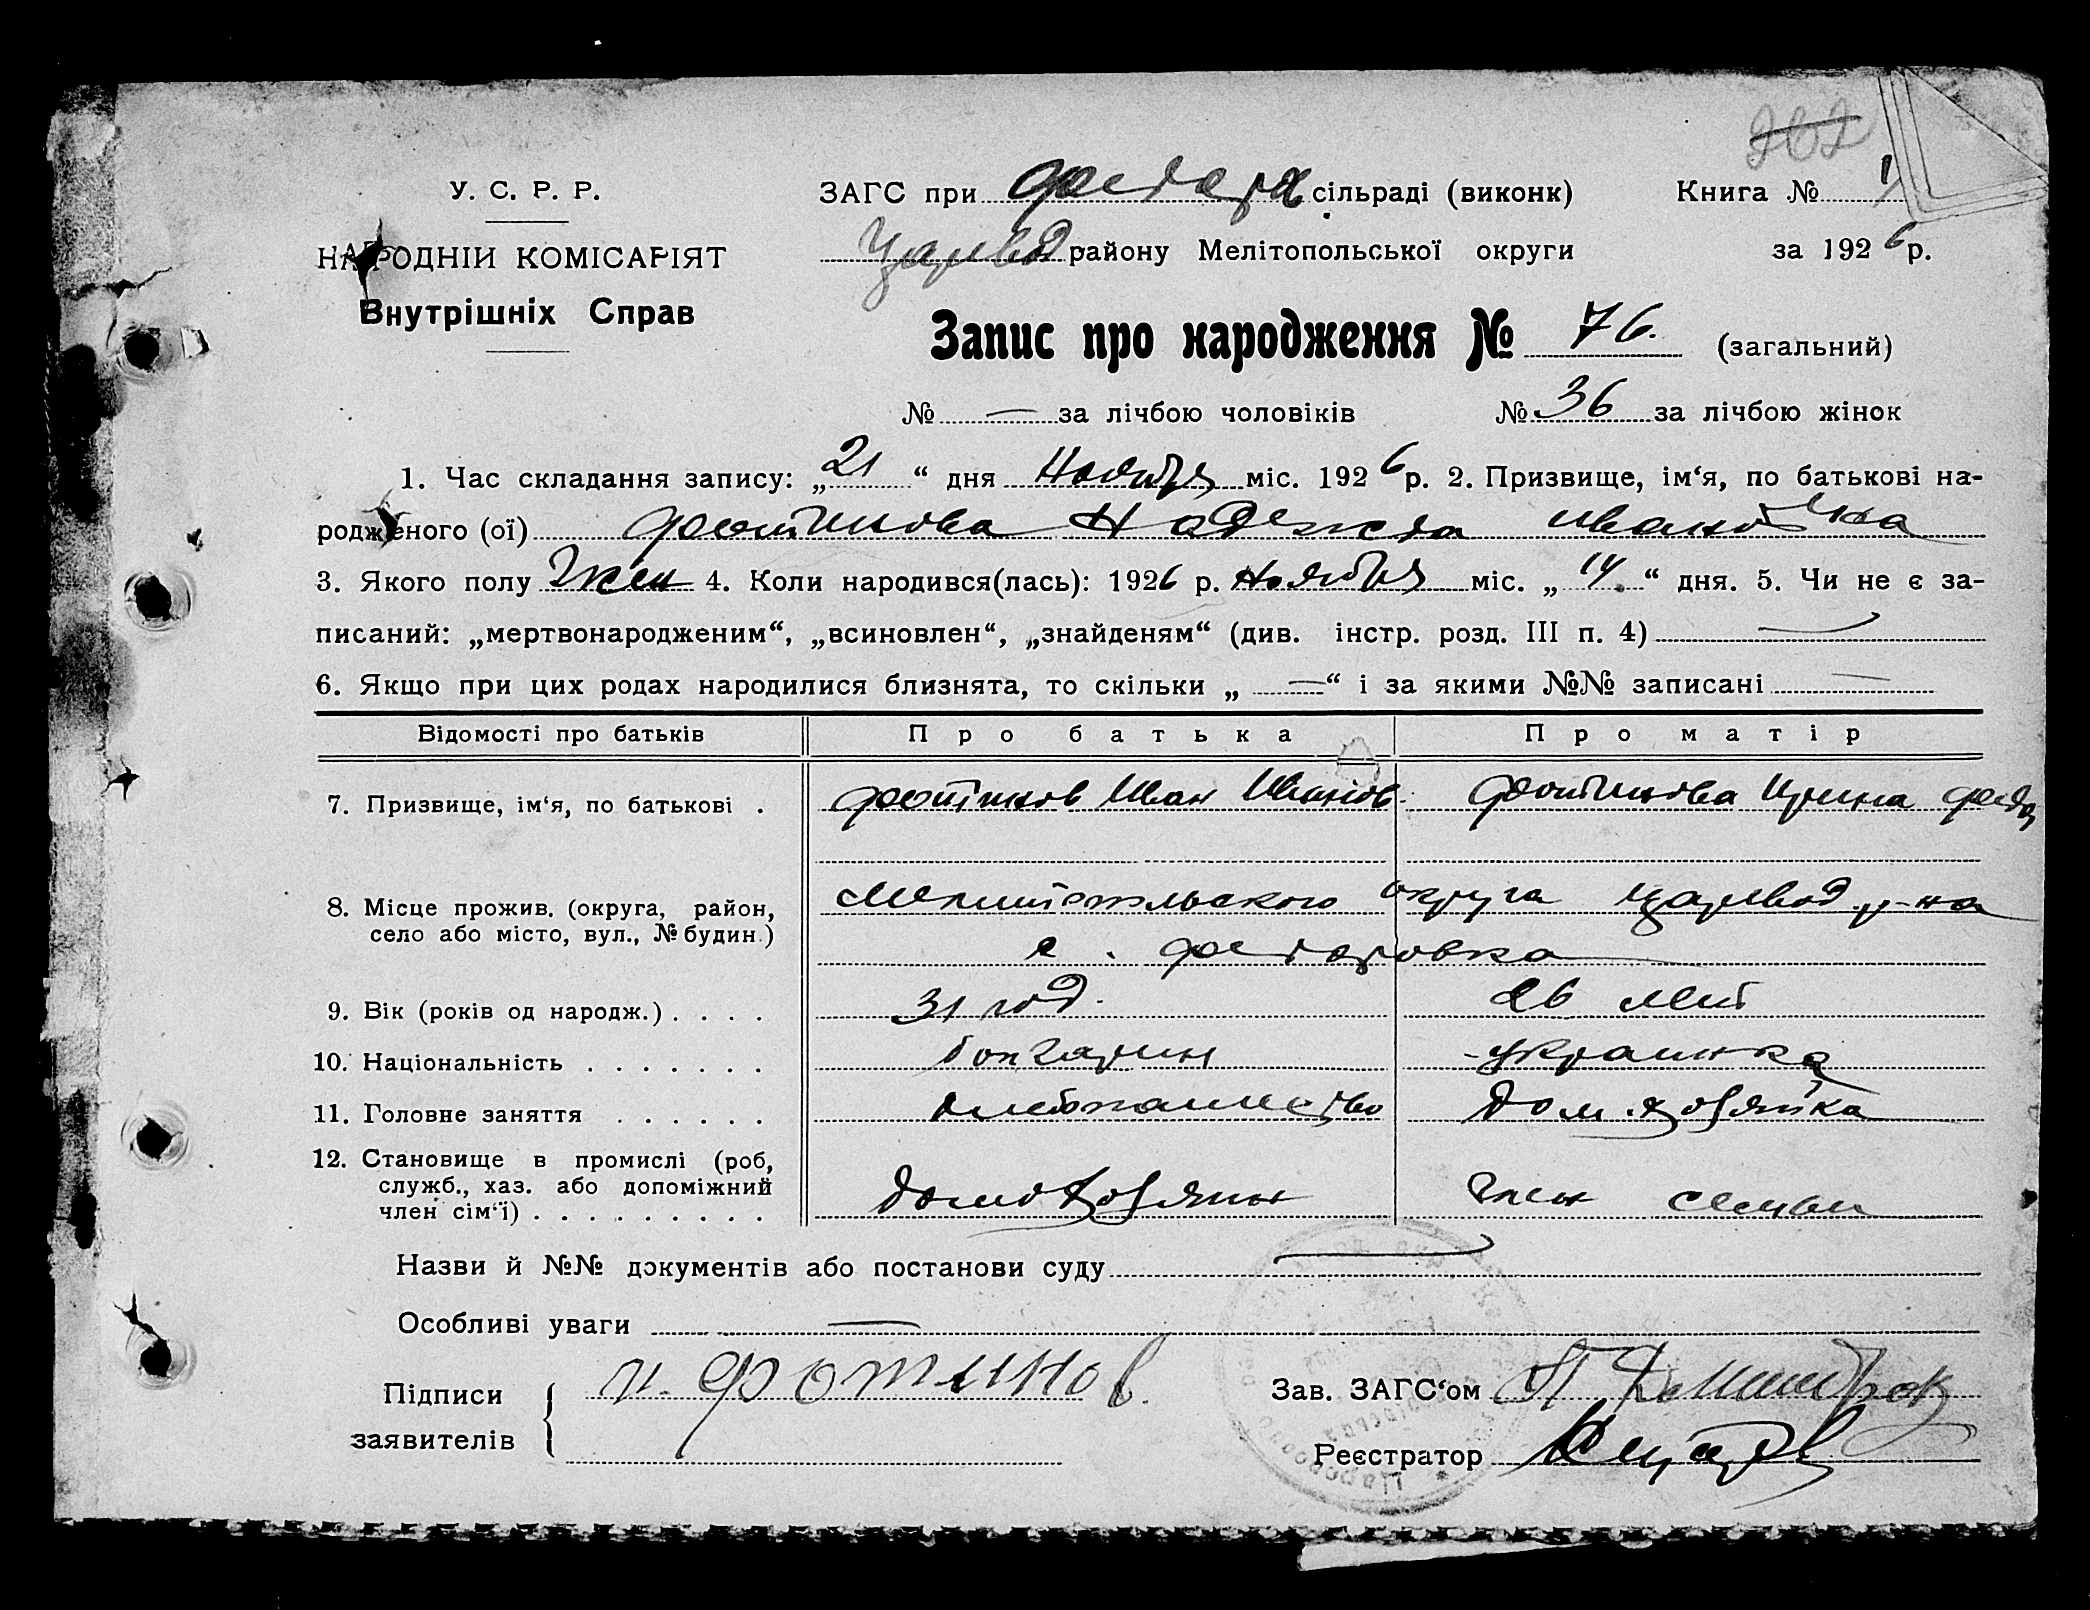 262
У. С. Р. Р.
НАРОДНІЙ КОМІСАРІЯТ
Внутрішніх Справ
ЗАГС при Федоров сільраді (виконк) Книга № 1
Царевод району Мелітопольської округи за 1926 р.
Запис про народження № 76. (загальний)
№ — за лічбою чоловіків № 36 за лічбою жінок
1. Час складання запису: „21“ дня Ноября міс. 1926 р. 2. Призвище, ім‘я, по батькові на-
родженого (ої) Фотинова Надежда Ивановка
3. Якого полу жен 4. Коли народився(лась): 1926 р. Ноября міс. „14“ дня. 5. Чи не є за-
писаний: „мертвонародженим“, „всиновлен“, „знайденям“ (див. інстр. розд. III п. 4) —
6. Якщо при цих родах народилися близнята, то скільки „ — “ і за якими №№ записані —
Відомості про батьків Про батька Про матір
7. Призвище, ім‘я, по батькові . Фотинов Иван Иванов. Фотинова Ирина Федо
8. Місце прожив. (округа, район, село або місто, вул., № будин.) Мелитопольского округа Царевод. р-на
с. Федоровка
9. Вік (років од народж.) . . . . 31 год. 26 лет
10. Національність . . . . . . . болгарин украинка
11. Головне заняття . . . . . . хлебопашество дом. хозяйка
12. Становище в промислі (роб,
служб., хаз. або допоміжний
член сім‘ї) . . . . . . . . . домохозяин член семьи
Назви й №№ документів або постанови суду —
Особливі уваги —
Підписи
заявителів
И. Фотинов.
Зав. ЗАГС‘ом
Реєстратор